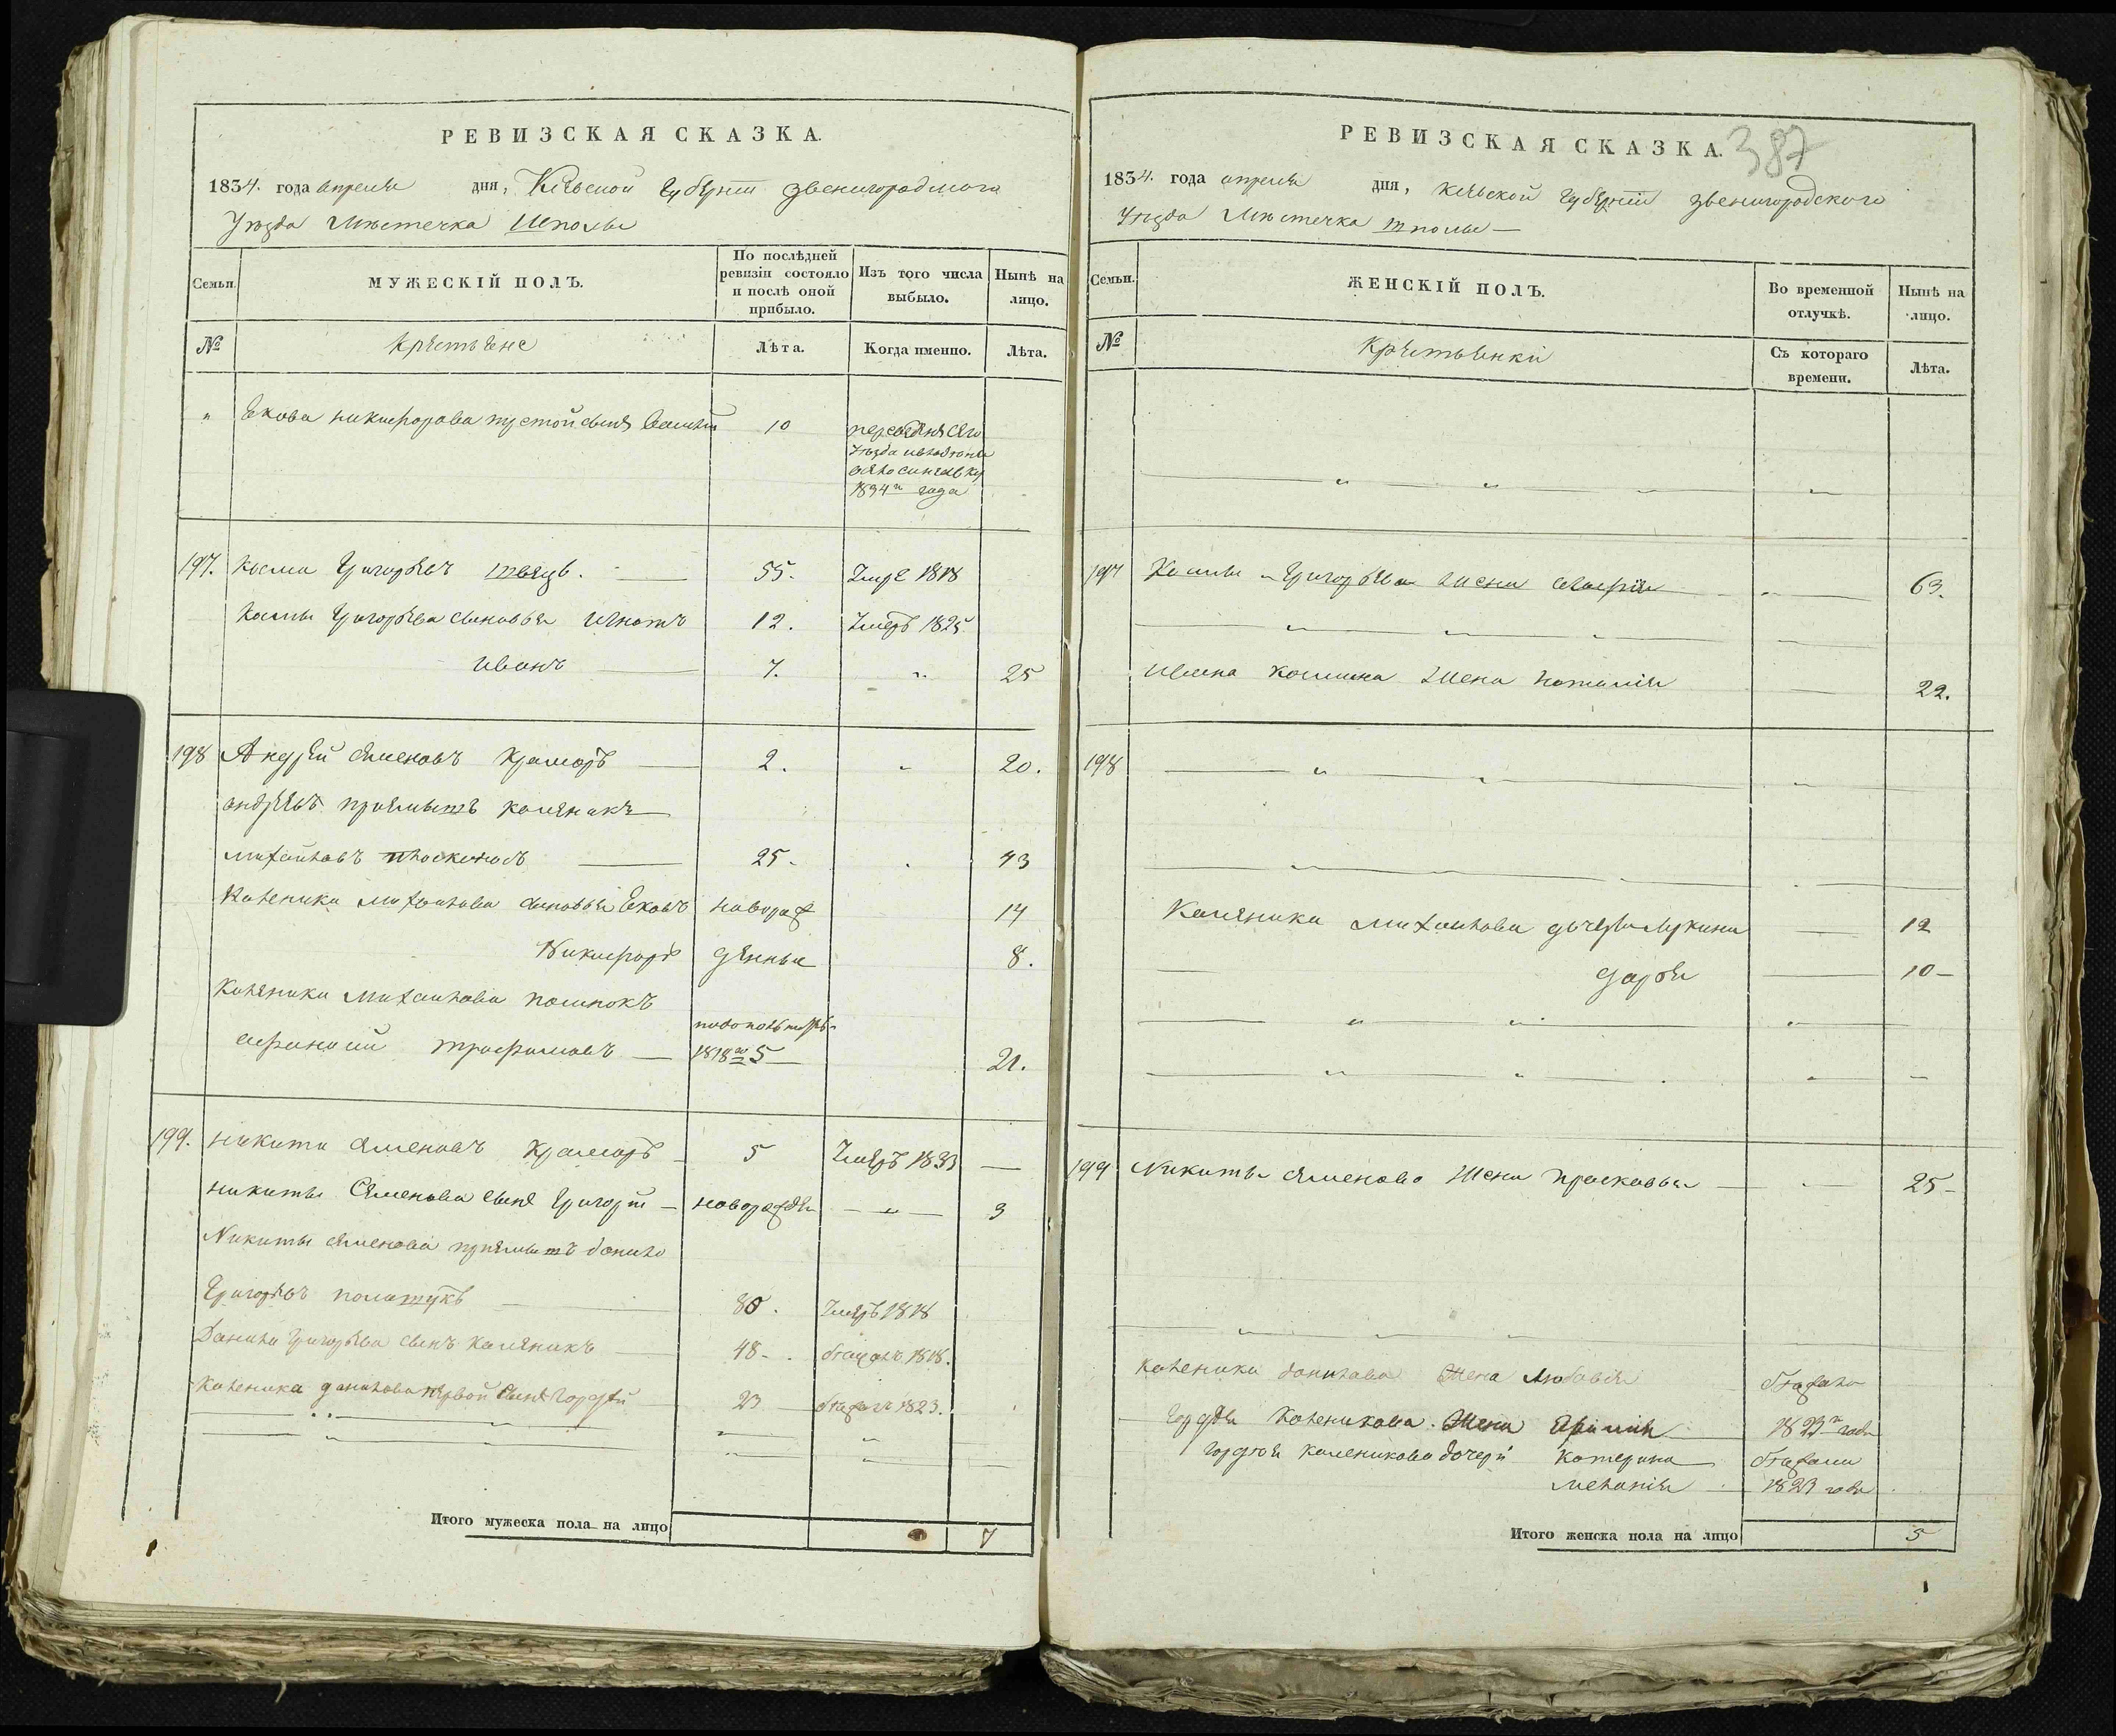 РЕВИЗСКАЯ СКАЗКА.
1834. года апреля дня, Кіевской губерніи звенигородского
Уезда местечка Шполы
Семьи.
МУЖЕСКІЙ ПОЛЪ.
По послѣдней ревизіи состояло и послѣ оной прибыло.
Изъ того числа выбыло.
Нынѣ на лицо.
№
крестьяне
Лѣта.
Когда именно.
Лѣта.
" Екова никифорова сынъ 10
уезда
1834 года
197. Косма Григорьевъ швецъ. 55. Умре 1818
Космы Григорьева сыновья Игнатъ 12. Умеръ 1825
Иванъ 7. " 25
198 Андрей Семеновъ Крамаръ 2. " 20.
андреевъ приемышъ каленикъ
михайловъ 25. 43
Каленика михайлова сыновья Ековъ новорож 14
Никифоръ денные 8.
Каленика михайлова
трофимовъ 1818го 5 21.
199. никита Семеновъ Крамаръ 5 Умеръ 1833 —
никиты Семенова сынъ Григорій новорожден " 3
Никиты Семенова приемышъ данило
Григорьевъ полищукъ 80. Умеръ 1818
Данила Григорьева сынъ каленикъ 48. бежалъ 1818.
Каленика данилова первой сынъ Гордей 23 бежалъ 1823.
Итого мужеска пола на лицо 7
387
РЕВИЗСКАЯ СКАЗКА.
1834. года апреля дня, кіевской губерніи звенигородского
Уезда местечка шполы
Семьи.
ЖЕНСКІЙ ПОЛЪ.
Во временной отлучкѣ.
Нынѣ на лицо.
№
крестьянки
Съ котораго времени.
Лѣта.
197 Космы Григорьева жена 63.
Ивана космина жена наталия 22.
198
Каленика михайлова дочери 12
дарья 10
199 Никиты Семенова жена Прасковья 25
Каленика данилова жена Любовья бежала
Гордея Каленикова жена 1823 года
Гордея каленикова дочери катерина бежали
меланія 1823 года
Итого женска пола на лицо 5